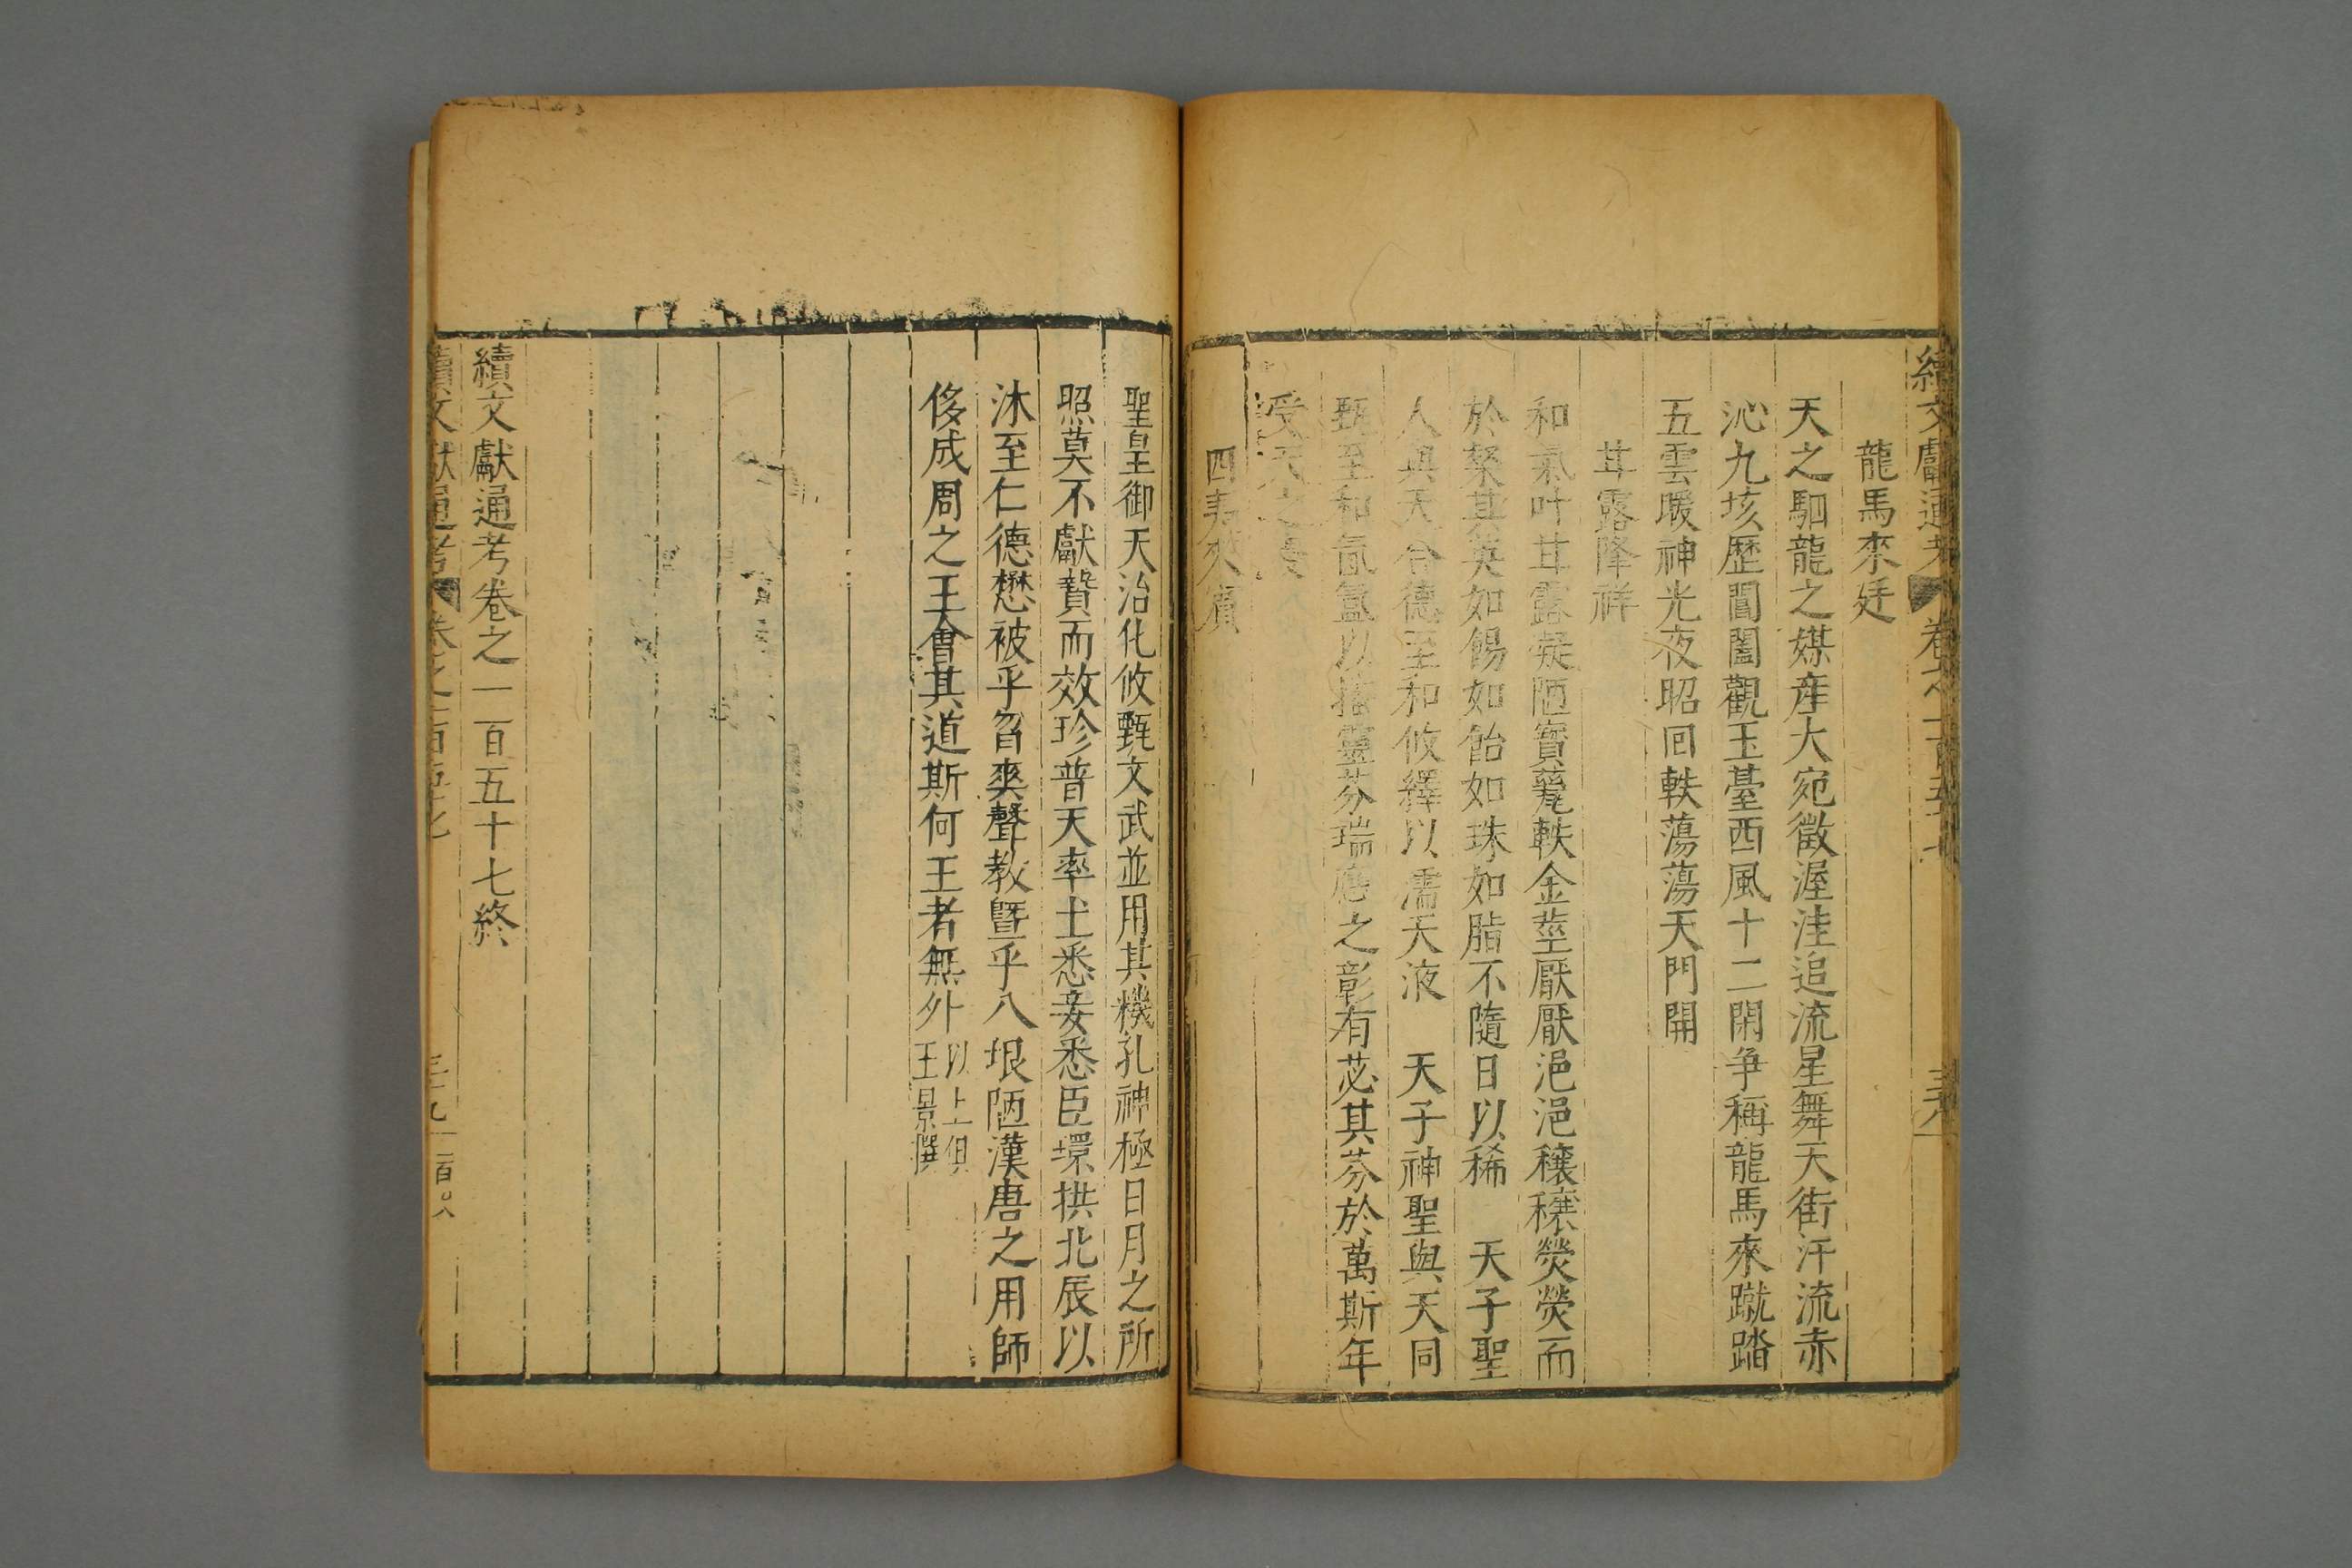 續文獻通考 卷之一百五十七 三十八
龍馬來廷
天之駟龍之媒産大宛徵渥洼追流星舞天街汗流赤
沁九垓歷閶闔觀玉臺西風十二閑争稱龍馬來蹴踏
五雲暖神光夜昭回軼蕩蕩天門開
甘露降祥
和氣叶甘露凝陋寶甕軼金莖厭厭浥浥穰穰熒熒而
於檠其英如餳如飴如珠如脂不隨日以稀 天子聖
人與天合德至和攸繹以濡天液 天子神聖與天同
甄至和氤氳以擷靈芬瑞應之彰有苾其芬於萬斯年
受天之
四夷來賓
聖皇御天治化攸甄文武並用其機孔神極日月之所
照莫不獻贄而效珍普天率土悉妾悉臣環拱北辰以
沐至仁德懋被乎曶爽聲教曁乎八垠陋漢唐之用師
侈成周之王會其道斯何王者無外以上俱
王景撰
續文獻通考卷之一百五十七終
續文獻通考 卷之一百五十七 三十九